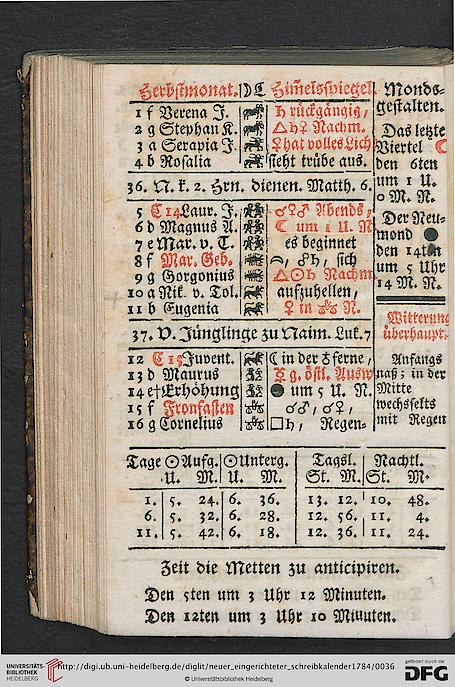 Herbstmonat. Himelsspiegel
1 f Verena J. ♄ rückgängig,
2 g Stephan K. △ ♄ ☿ Nachm.
3 a Serapia J. ☿ hat volles Lich
4 b Rosalia sieht trübe aus.
36. N. k. 2. Hrn. dienen. Matth. 6.
5 C 14 Laur. J. Abends,
6 d Magnus A. ☾ um 1 U. N
7 e Mar. v. T. es beginnet
8 f Mar. Geb. ♄, sich
9 g Gorgonius △☉♄ Nachm
10 a Nik. v. Tol. aufzuhellen,
11 b Eugenia ☿ in N.
37. V. Jünglinge zu Naim. Luk. 7
12 C 15 Juvent. ☾ in der Erdferne,
13 d Maurus g. östl. Ausw
14 e † Erhöhung um 5 U. N.
15 f Fronfasten
16 g Cornelius □♄, Regen-
Monds-
gestalten.
Das letzte
Viertel ☾
den 6ten
um 1 U.
0 M. N.
Der Neu-
mond
den 14ten
um 5 Uhr
14 M. N.
Witterung
überhaupt.
Anfangs
naß; in der
Mitte
wechselts
mit Regen
Tage ☉ Aufg. ☉ Unterg. Tagsl. Nachtl.
U. M. U. M. St. M. St. M.
1. 5. 24. 6. 36. 13. 12. 10. 48.
6. 5. 32. 6. 28. 12. 56. 11. 4.
11. 5. 42. 6. 18. 12. 36. 11. 24.
Zeit die Metten zu anticipiren.
Den 5ten um 3 Uhr 12 Minuten.
Den 12ten um 3 Uhr 10 Minuten.
UNIVERSITÄTS-
BIBLIOTHEK
HEIDELBERG
http://digi.ub.uni-heidelberg.de/diglit/neuer_eingerichteter_schreibkalender1784/0036
© Universitätsbibliothek Heidelberg
gefördert durch die
DFG